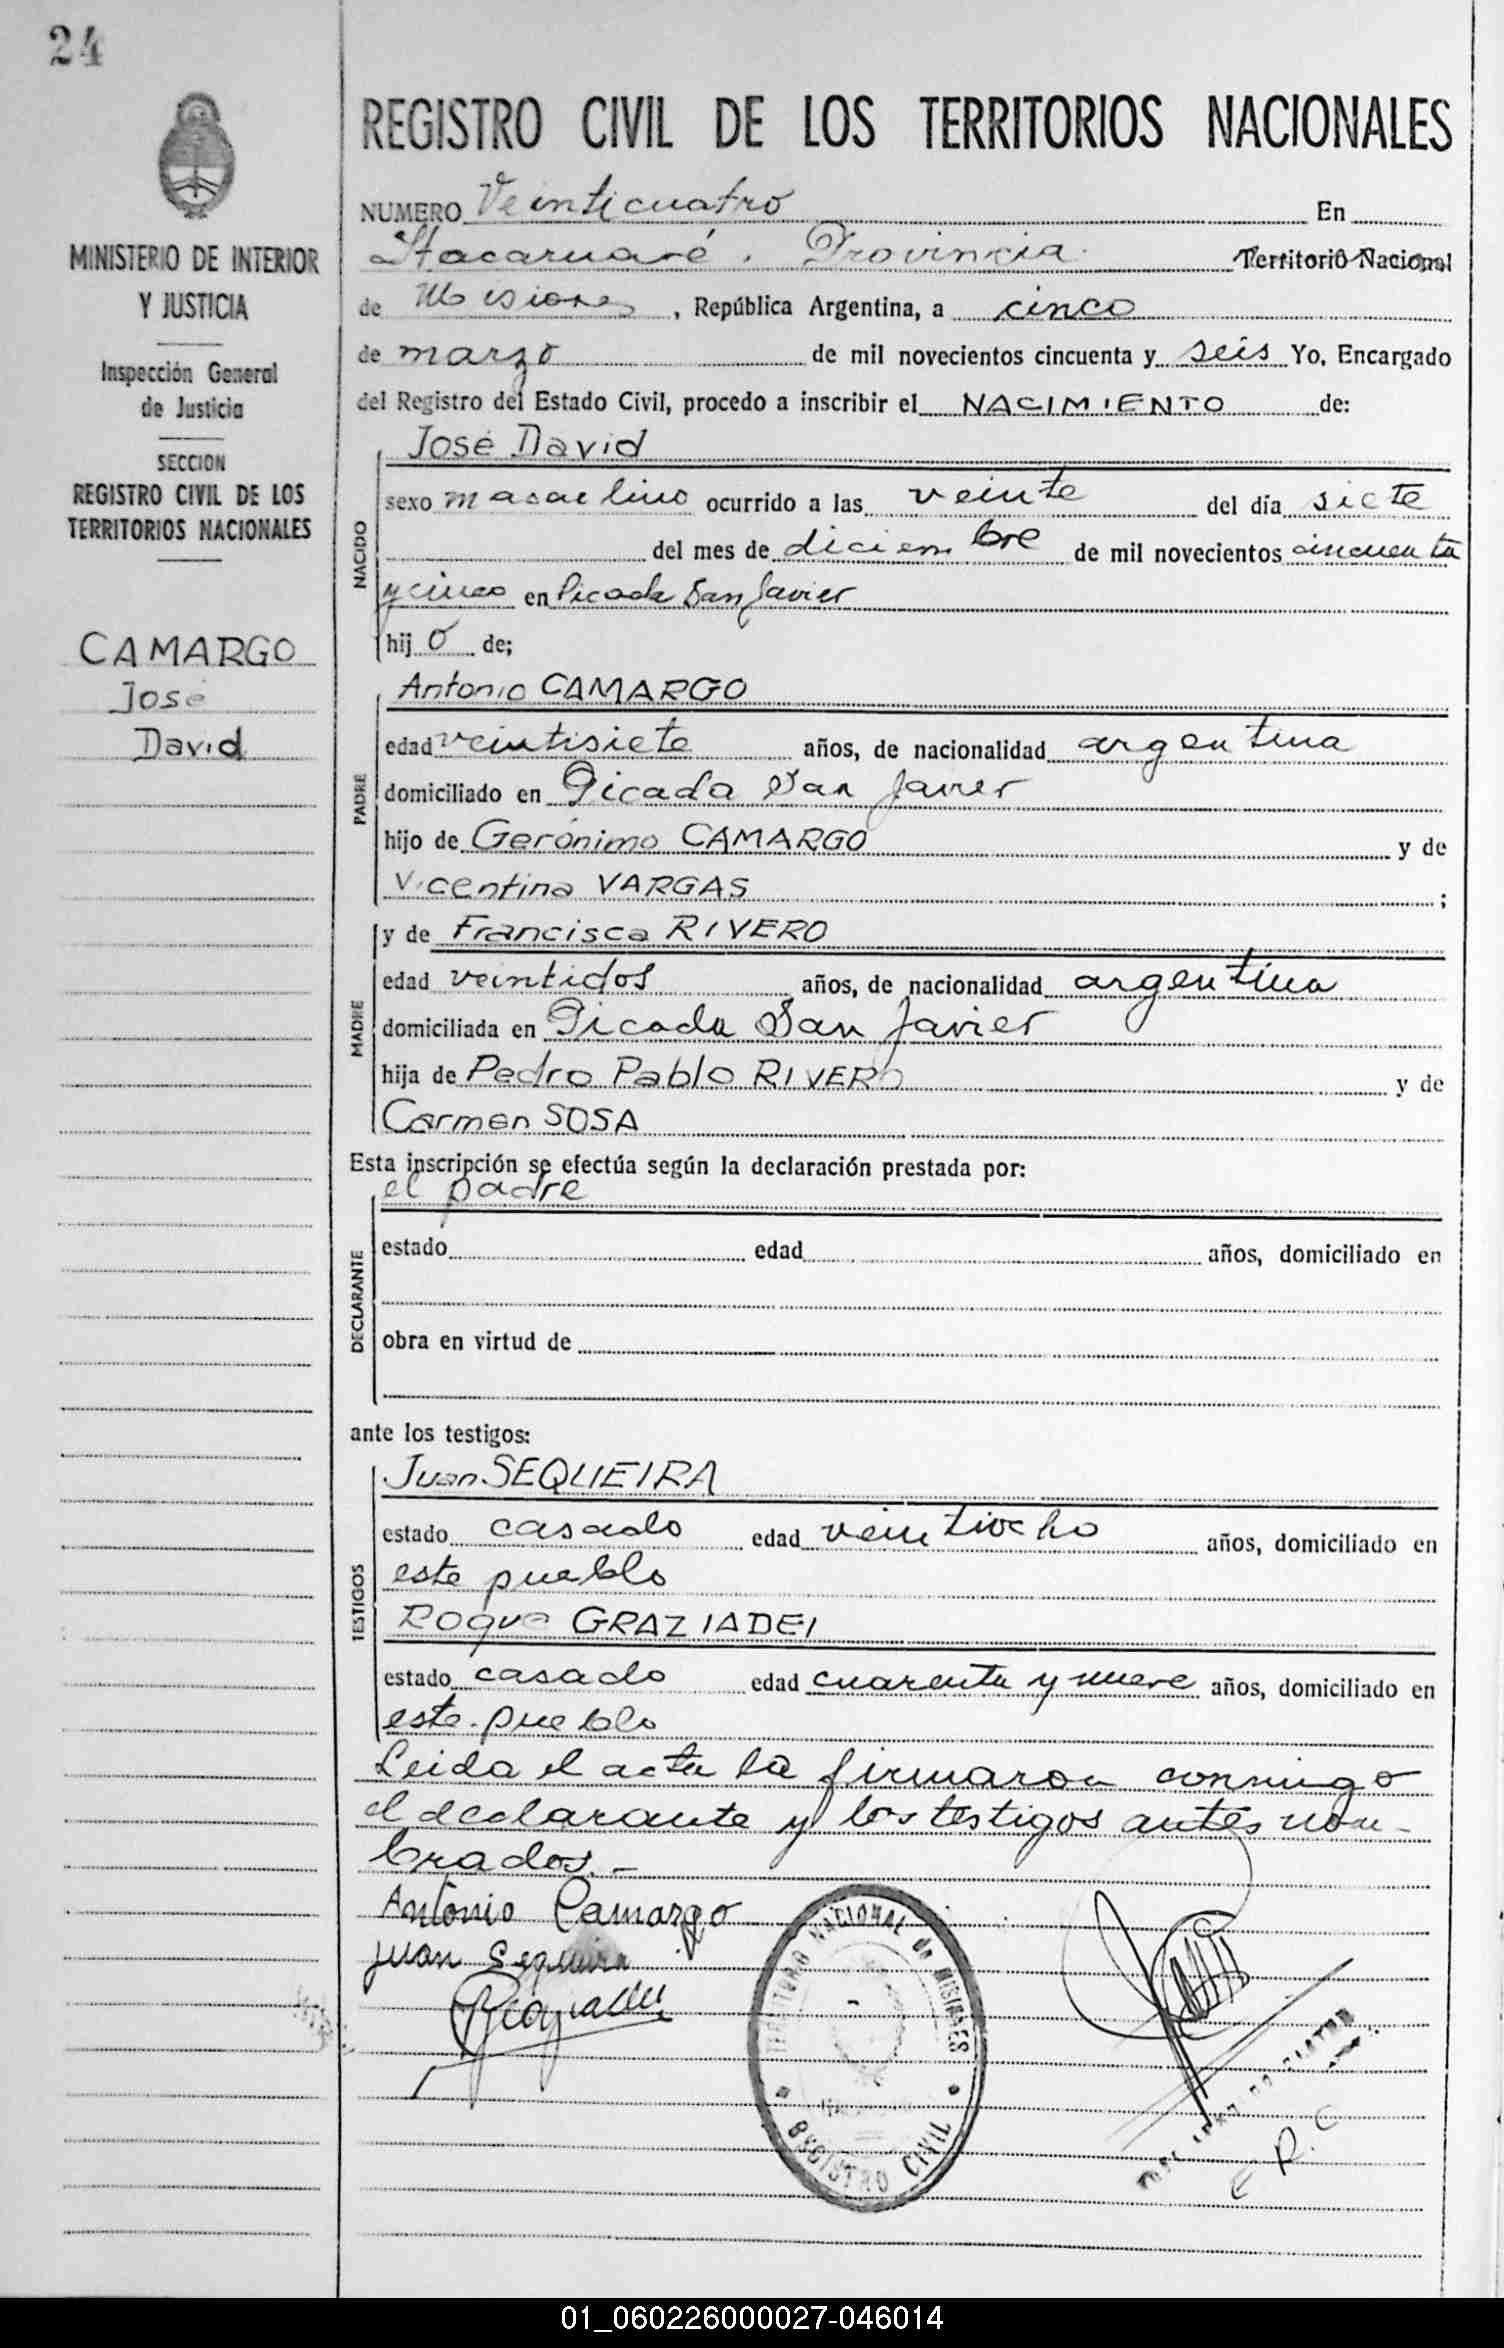 24
MINISTERIO DE INTERIOR
Y JUSTICIA
Inspección General
de Justicia
SECCION
REGISTRO CIVIL DE LOS
TERRITORIOS NACIONALES
CAMARGO
José
David
REGISTRO CIVIL DE LOS TERRITORIOS NACIONALES
NUMERO Veinticuatro En
Itacaruaré. Provincia Territorio Nacional
de Misiones, República Argentina, a cinco
de marzo de mil novecientos cincuenta y seis Yo, Encargado
del Registro del Estado Civil, procedo a inscribir el NACIMIENTO de:
NACIDO
José David
sexo masculino ocurrido a las veinte del día siete
del mes de diciembre de mil novecientos cincuenta
y cinco en Picada San Javier
hij o de;
PADRE
Antonio CAMARGO
edad veintisiete años, de nacionalidad argentina
domiciliado en Picada San Javier
hijo de Gerónimo CAMARGO y de
Vicentina VARGAS ;
MADRE
y de Francisca RIVERO
edad veintidos años, de nacionalidad argentina
domiciliada en Picada San Javier
hija de Pedro Pablo RIVERO y de
Carmen SOSA
Esta inscripción se efectúa según la declaración prestada por:
DECLARANTE
el padre
estado edad años, domiciliado en
obra en virtud de
ante los testigos:
TESTIGOS
Juan SEQUEIRA
estado casado edad veintiocho años, domiciliado en
este pueblo
Roque GRAZIADEI
estado casado edad cuarenta y nueve años, domiciliado en
este pueblo
Leida el acta la firmaron conmigo
el declarante y los testigos antes nom-
brados.-
Antonio Camargo
Juan Sequeira
TERRITORIO NACIONAL de MISIONES
REGISTRO CIVIL
E R. C
01_060226000027-046014